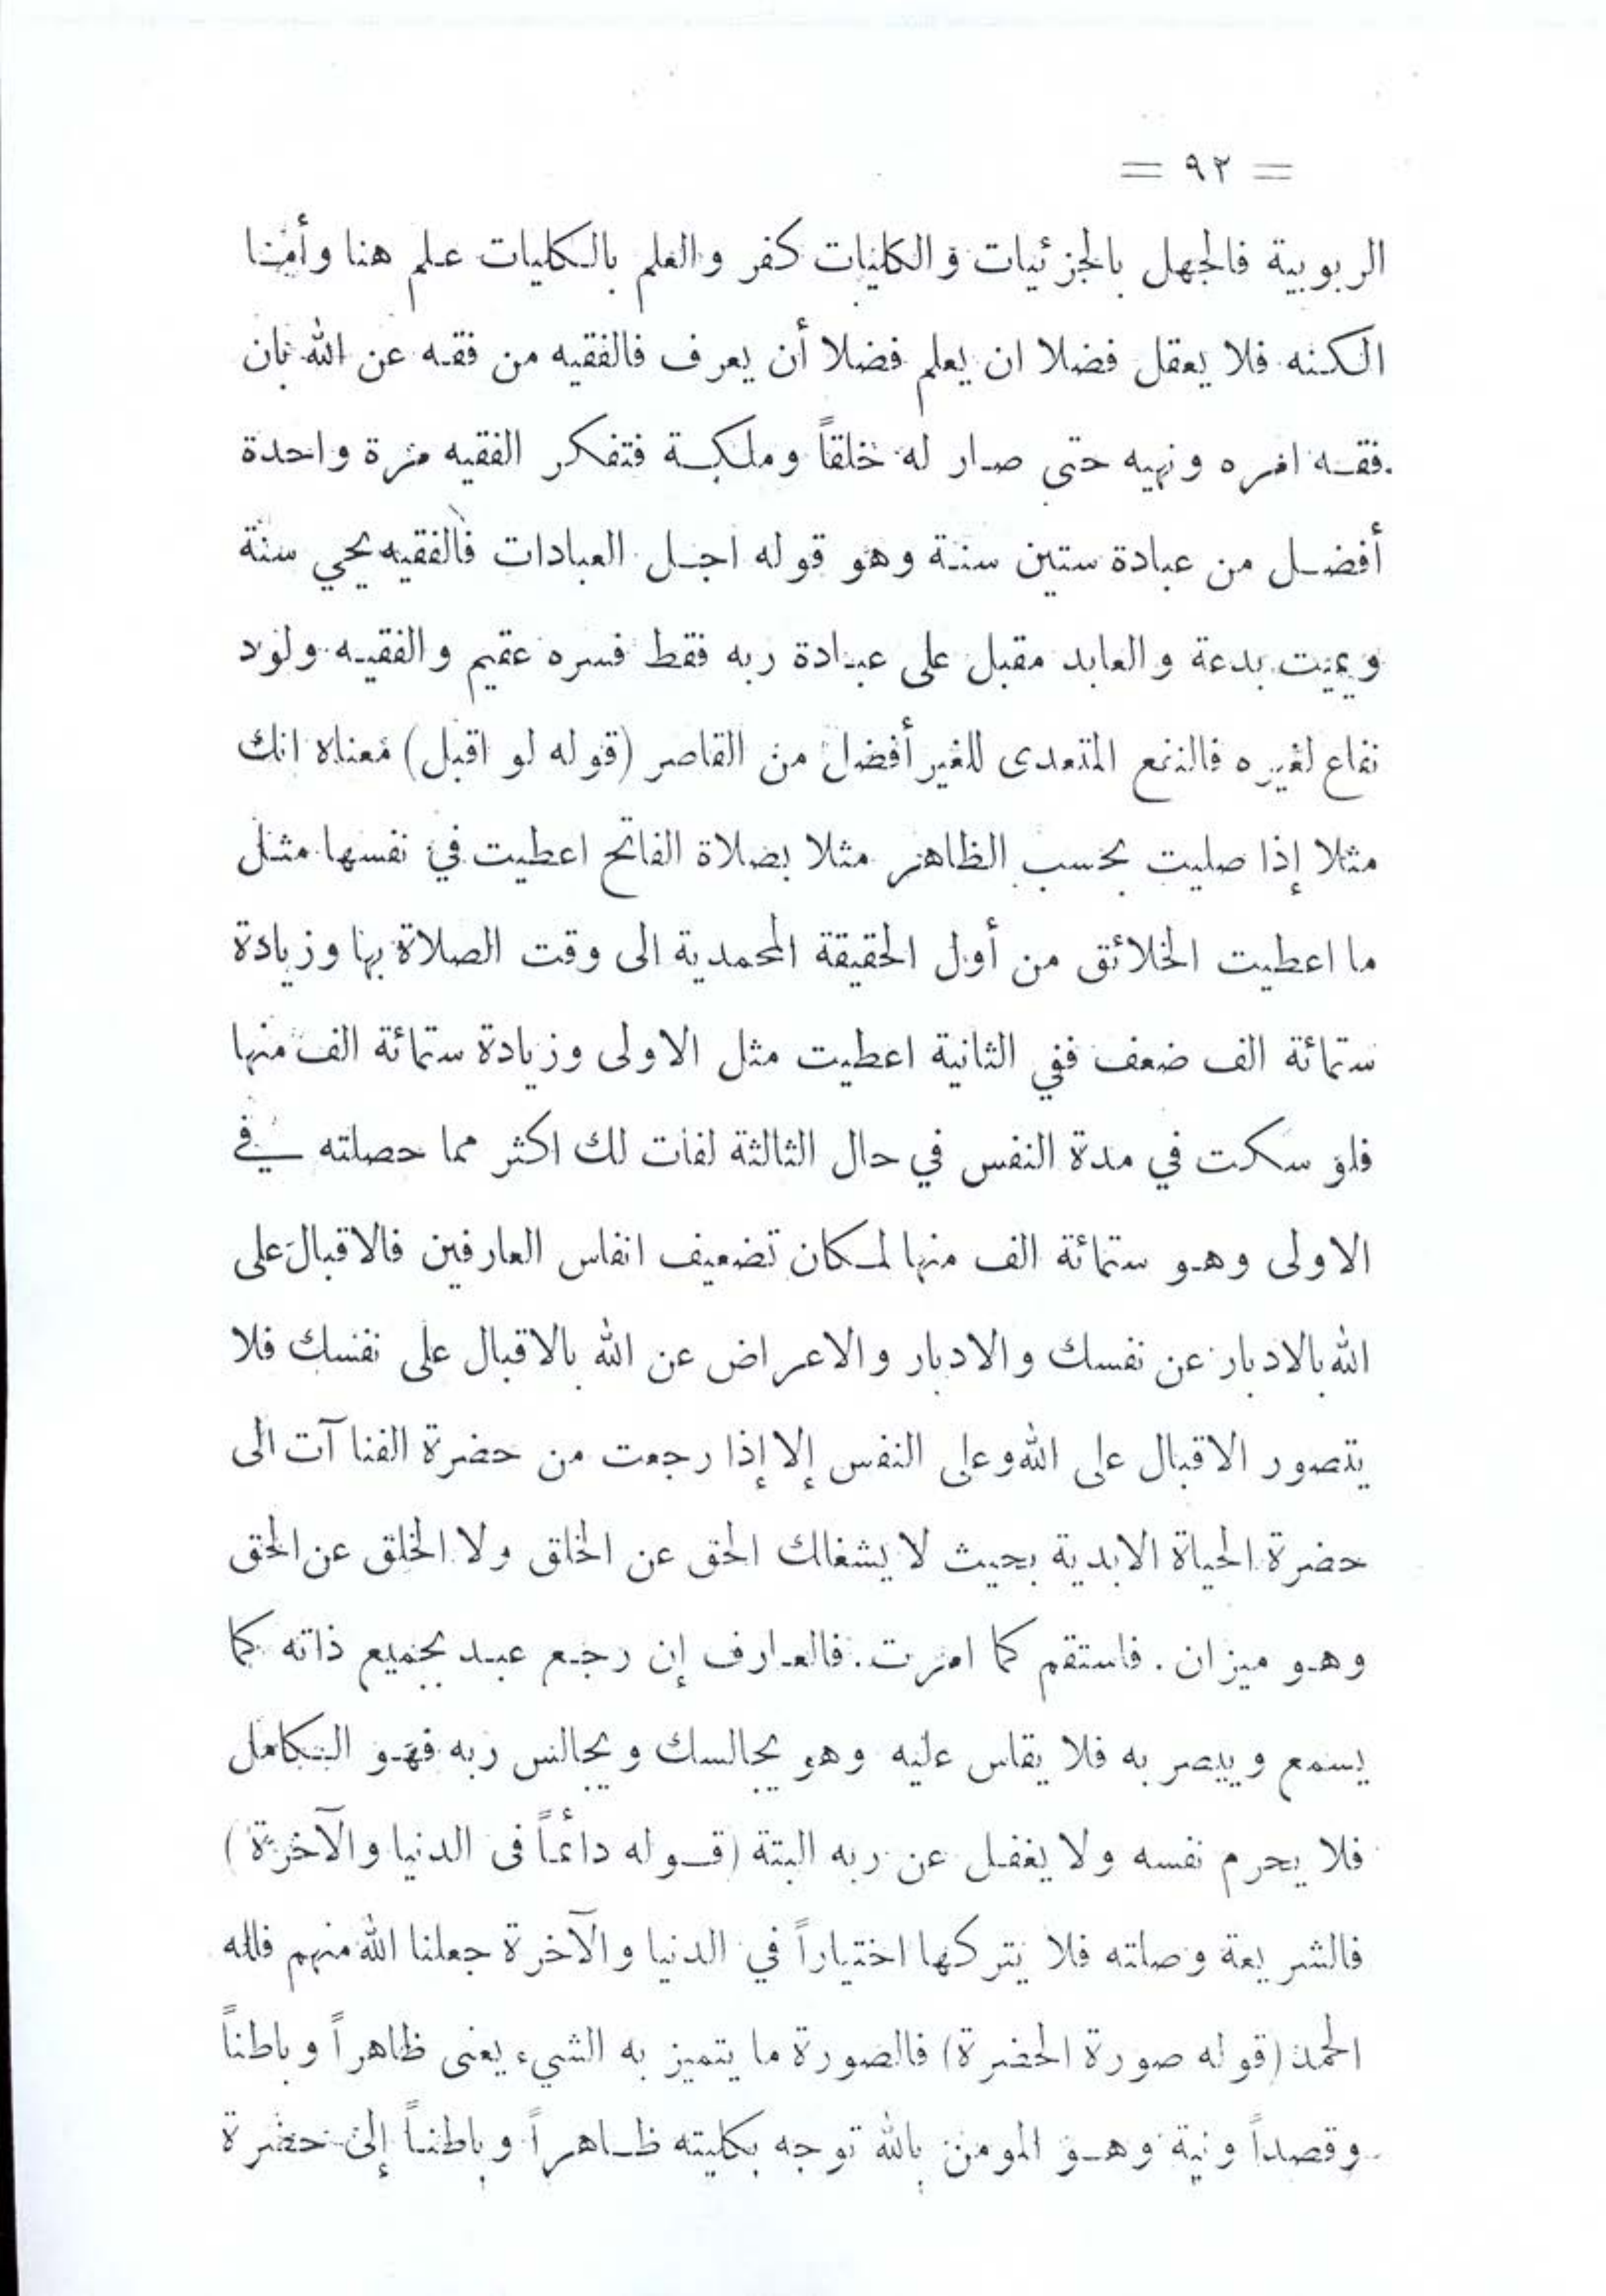 = ٩٢ =
الربوبية فالجهل بالجزئيات والكليات كفر والعلم بالكليات علم هنا وأمنا
الكنه فلا يعقل فضلا ان يعلم فضلا أن يعرف فالفقيه من فقه عن الله بان
فقه امره ونهيه حتى صار له خلقاً وملكة فتفكر الفقيه مرة واحدة
أفضل من عبادة ستين سنة وهو قوله اجل العبادات فالفقيه يحي سنة
ويميت بدعة والعابد مقبل على عبادة ربه فقط فسره عقيم والفقيه ولود
نفاع لغيره فالنفع المتعدى للغير أفضل من القاصر (قوله لو اقبل) معناه انك
مثلا إذا صليت بحسب الظاهر مثلا بصلاة الفاتح اعطيت في نفسها مثل
ما اعطيت الخلائق من أول الحقيقة المحمدية الى وقت الصلاة بها وزيادة
ستمائة الف ضعف ففي الثانية اعطيت مثل الاولى وزيادة ستمائة الف منها
فلو سكت في مدة النفس في حال الثالثة لفات لك اكثر مما حصلته في
الاولى وهو ستمائة الف منها لمكان تضعيف انفاس العارفين فالاقبال على
الله بالادبار عن نفسك والادبار والاعراض عن الله بالاقبال على نفسك فلا
يتصور الاقبال على الله وعلى النفس إلا إذا رجعت من حضرة الفنا آت الى
حضرة الحياة الابدية بحيث لا يشغلك الحق عن الخلق ولا الخلق عن الحق
وهو ميزان . فاستقم كما امرت . فالعارف إن رجع عبد بجميع ذاته كما
يسمع ويبصر به فلا يقاس عليه وهو يجالسك ويجالس ربه فهو الكامل
فلا يحرم نفسه ولا يغفل عن ربه البتة (قوله دائماً فى الدنيا والآخرة)
فالشريعة وصلته فلا يتركها اختياراً في الدنيا والآخرة جعلنا الله منهم فلله
الحمد (قوله صورة الحضرة) فالصورة ما يتميز به الشيء يعنى ظاهراً وباطناً
وقصداً ونية وهو المومن بالله توجه بكليته ظاهراً وباطناً إلى حضرة